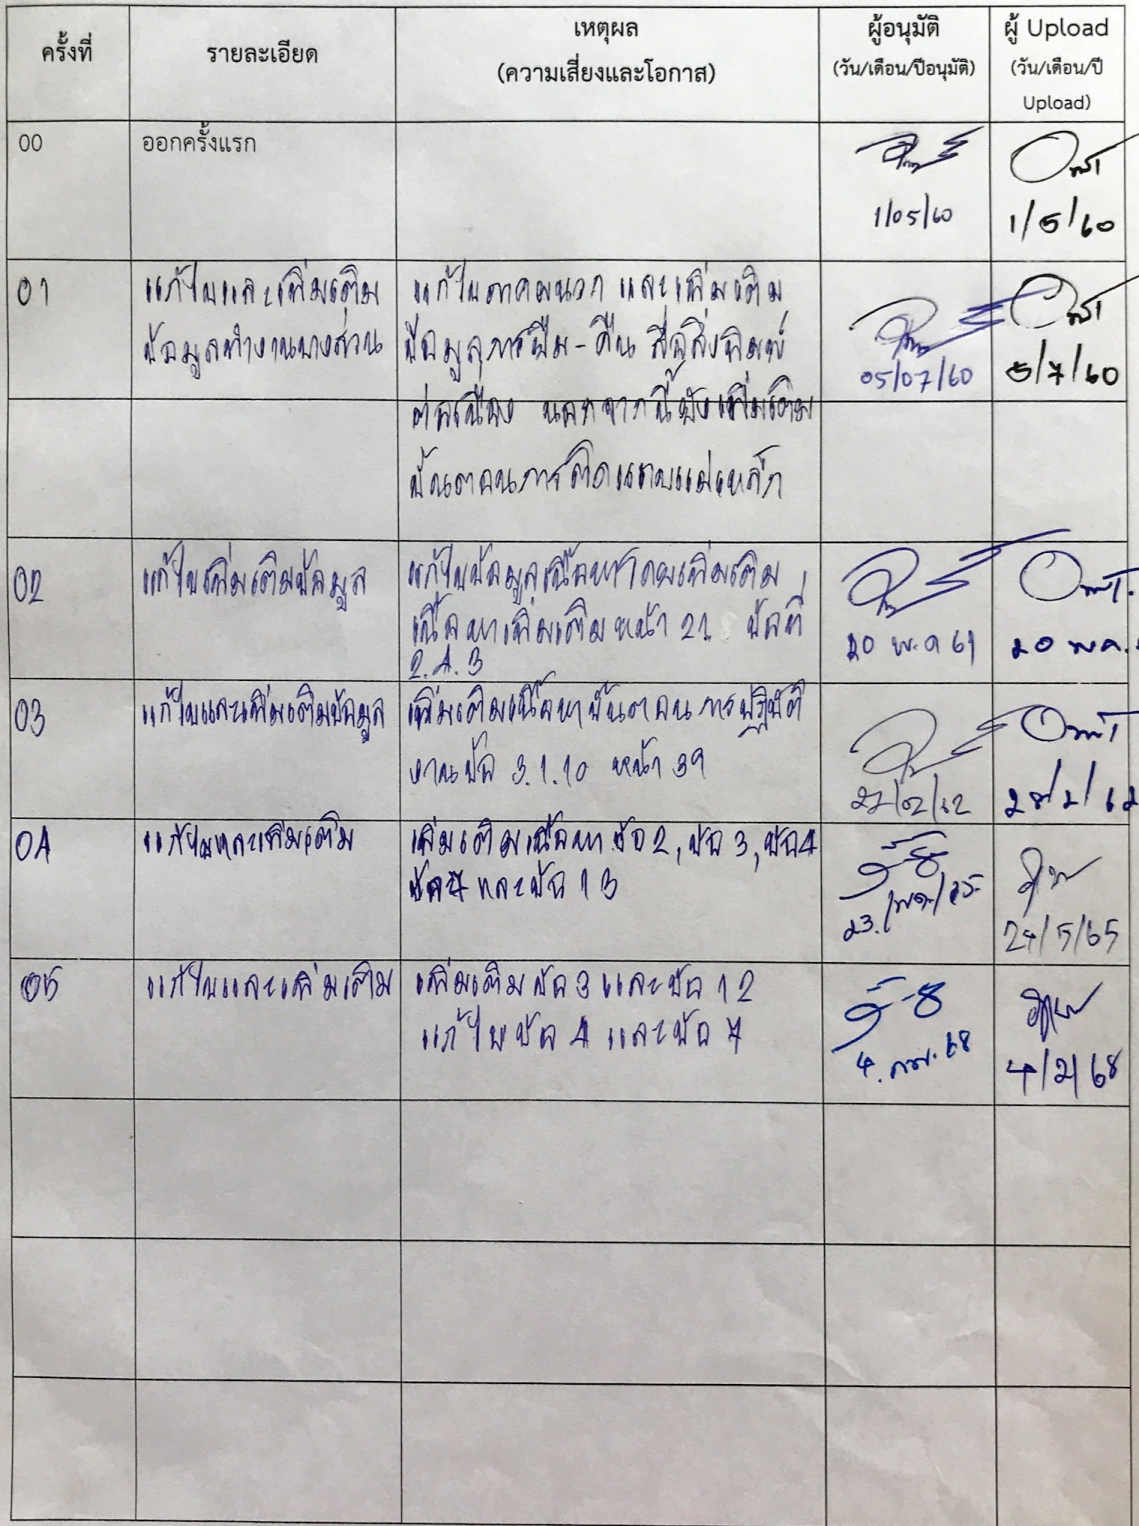 ครั้งที่ รายละเอียด เหตุผล (ความเสี่ยงและโอกาส) ผู้อนุมัติ (วัน/เดือน/ปีอนุมัติ) ผู้ Upload (วัน/เดือน/ปี Upload)
00 ออกครั้งแรก
1/05/60 1/5/60
01 แก้ไขและเพิ่มเติม แก้ไขภาคผนวก และเพิ่มเติม
ข้อมูลทำงานบางส่วน ข้อมูลการยืม-คืน สื่อสิ่งพิมพ์
05/07/60 5/7/60
ต่อเนื่อง นอกจากนี้ยังเพิ่มเติม
ขั้นตอนการติดแถบแม่เหล็ก
02 แก้ไขเพิ่มเติมข้อมูล แก้ไขข้อมูลเนื้อหาโดยเพิ่มเติม
เนื้อหาเพิ่มเติมหน้า 21 ข้อที่
2.4.3
20 พ.ค 61 20 พค.
03 แก้ไขและเพิ่มเติมข้อมูล เพิ่มเติมเนื้อหาขั้นตอนการปฏิบัติ
งานข้อ 3.1.10 หน้า 39
27/02/62 28/2/62
04 แก้ไขและเพิ่มเติม เพิ่มเติมเนื้อหา ข้อ 2, ข้อ 3, ข้อ 4
ข้อ 7 และข้อ 13
23/พค/65 24/5/65
05 แก้ไขและเพิ่มเติม เพิ่มเติมข้อ 3 และข้อ 12
แก้ไขข้อ 4 และข้อ 7
4 กพ. 68 4/2/68